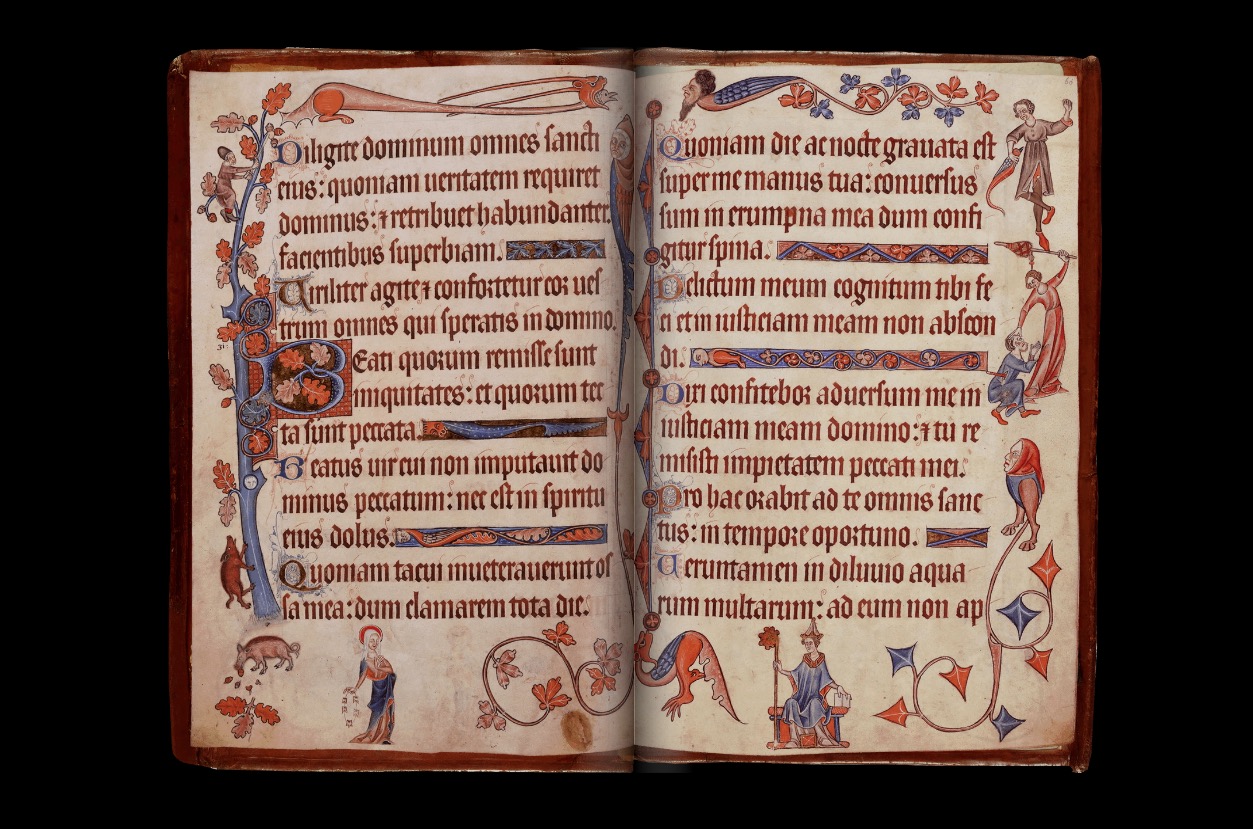 Diligite dominum omnes sancti
eius: quoniam ueritatem requiret
dominus: ⁊ retribuet habundanter
facientibus superbiam.
Uiriliter agite ⁊ confortetur cor ues
trum omnes qui speratis in domino.
31
Beati quorum remisse sunt
iniquitates: et quorum tec
ta sunt peccata.
Beatus uir cui non imputauit do
minus peccatum: nec est in spiritu
eius dolus.
Quoniam tacui inueterauerunt os
sa mea: dum clamarem tota die.
60
Quoniam die ac nocte grauata est
super me manus tua: conuersus
sum in erumpna mea dum confi
gitur spina.
Delictum meum cognitum tibi fe
ci et in iusticiam meam non abscon
di.
Dixi confitebor aduersum me in
iusticiam meam domino: ⁊ tu re
misisti impietatem peccati mei.
Pro hac orabit ad te omnis sanc
tus: in tempore oportuno.
Ueruntamen in diluuio aqua
rum multarum: ad eum non ap